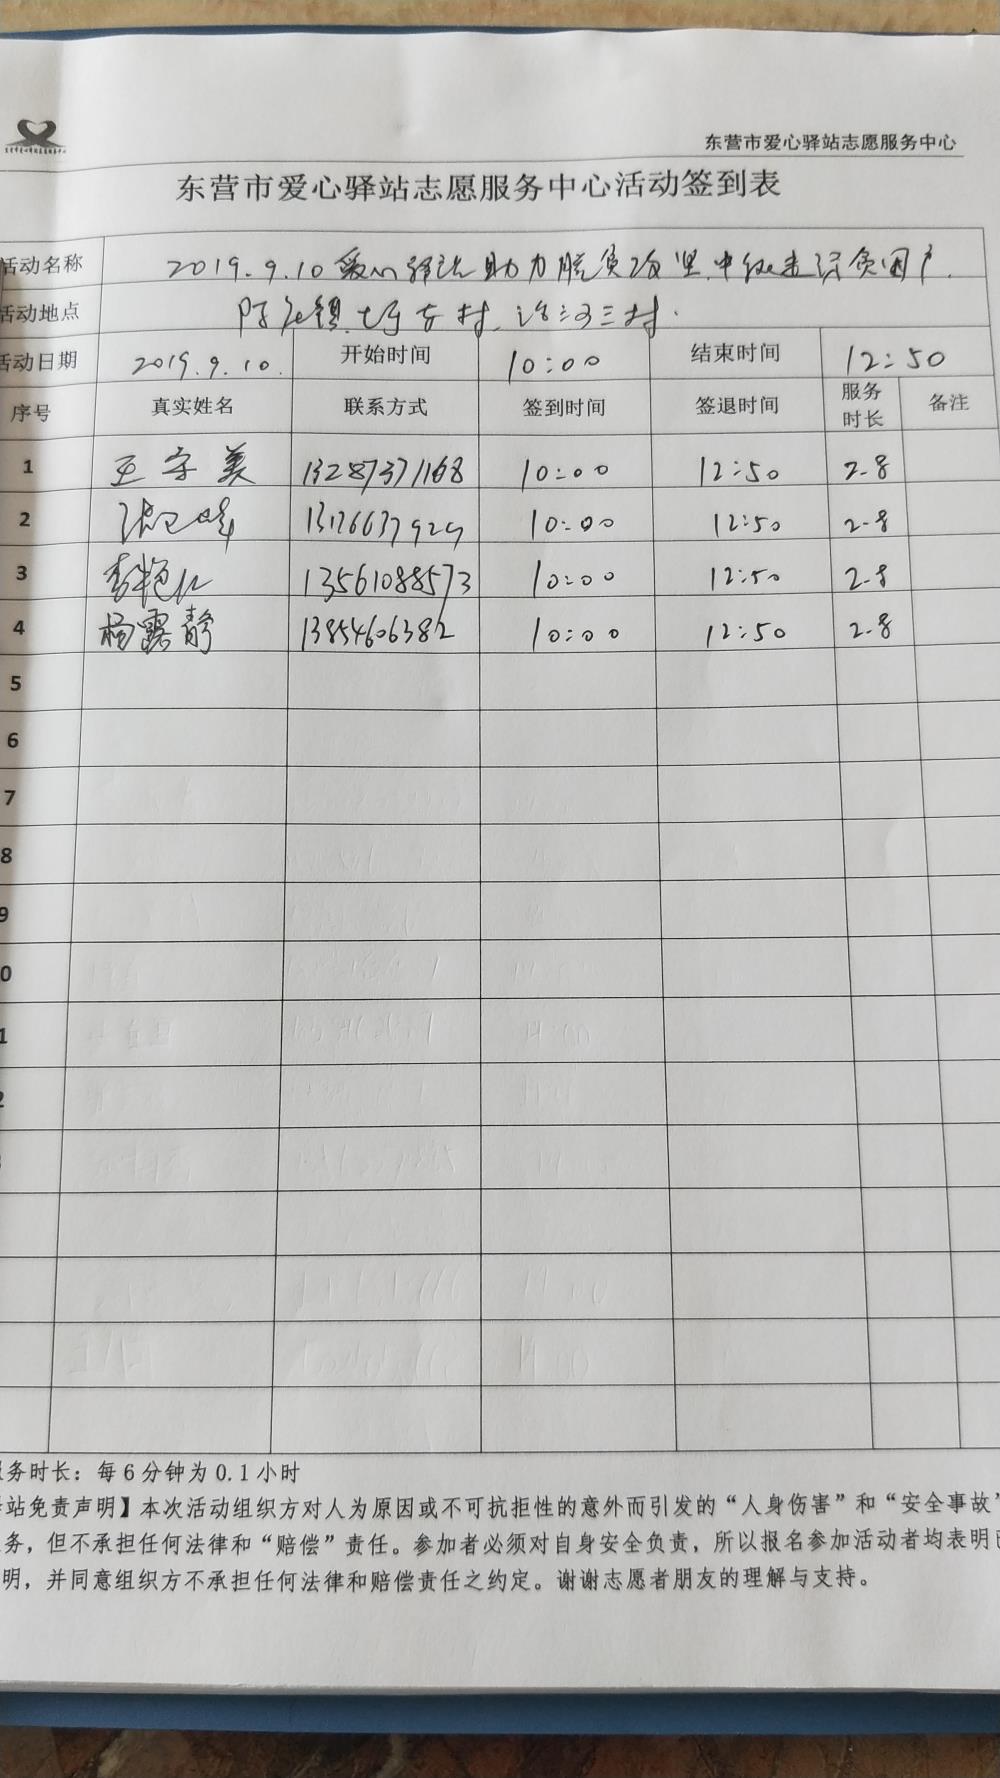 东营市爱心驿站志愿服务中心
东营市爱心驿站志愿服务中心活动签到表
活动名称 2019.9.10 爱心驿站助力脱贫攻坚 中 贫困户
活动地点 村、 三村.
活动日期 2019.9.10. 开始时间 10:00 结束时间 12:50
序号 真实姓名 联系方式 签到时间 签退时间 服务时长 备注
1 王字美 13287371168 10:00 12:50 2.8
2 10:00 12:50 2.8
3 李艳红 13561088573 10:00 12:50 2.8
4 杨露静 13854606382 10:00 12:50 2.8
5
6
7
8
9
0
1
2
服务时长：每6分钟为0.1小时
站免责声明】本次活动组织方对人为原因或不可抗拒性的意外而引发的“人身伤害”和“安全事故”
务，但不承担任何法律和“赔偿”责任。参加者必须对自身安全负责，所以报名参加活动者均表明已
明，并同意组织方不承担任何法律和赔偿责任之约定。谢谢志愿者朋友的理解与支持。